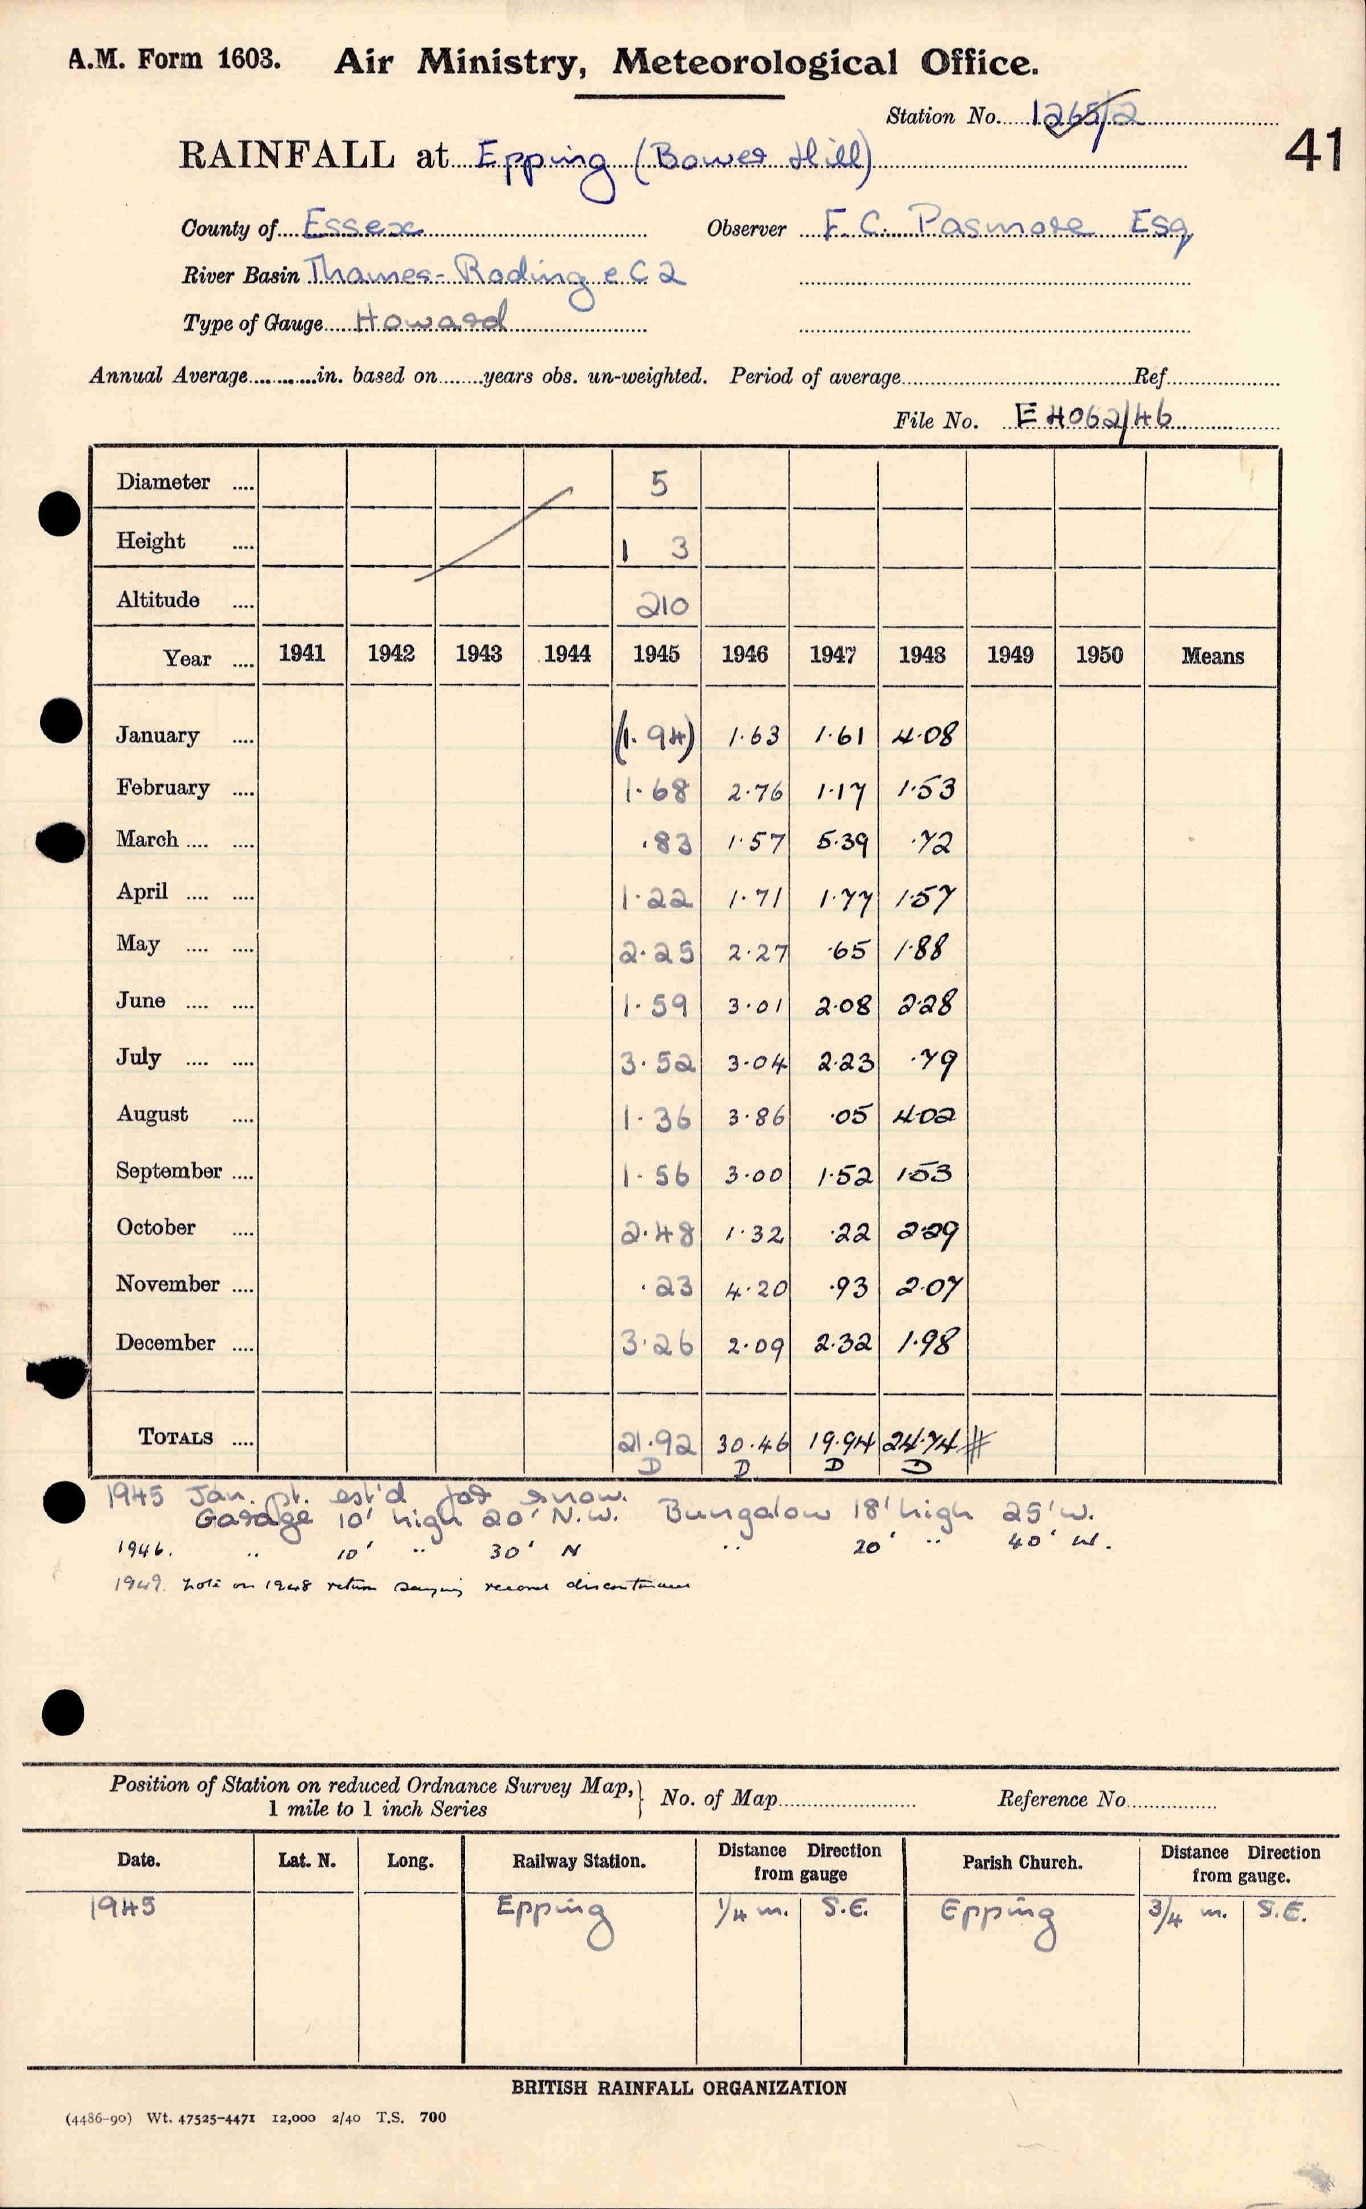 A.M. Form 1603. Air Ministry, Meteorological Office.
Station No. 1265/2
41
RAINFALL at Epping (Bower Hill)
County of Essex Observer F. C. Pasmore Esq
River Basin Thames-Roding e C 2
Type of Gauge Howard
Annual Average............in. based on........years obs. un-weighted. Period of average........ Ref........
File No. E 4062/46
Diameter .... 5
Height .... 1 3
Altitude .... 210
Year .... 1941 1942 1943 1944 1945 1946 1947 1948 1949 1950 Means
January .... (1.94) 1.63 1.61 4.08
February .... 1.68 2.76 1.17 1.53
March .... .... .83 1.57 5.39 .72
April .... .... 1.22 1.71 1.77 1.57
May .... .... 2.25 2.27 .65 1.88
June .... .... 1.59 3.01 2.08 2.28
July .... .... 3.52 3.04 2.23 .79
August .... 1.36 3.86 .05 4.02
September .... 1.56 3.00 1.52 1.53
October .... 2.48 1.32 .22 2.29
November .... .23 4.20 .93 2.07
December .... 3.26 2.09 2.32 1.98
TOTALS .... 21.92 30.46 19.94 24.74 #
D D D D
1945 Jan. pt. est'd for snow.
Garage 10' high 20' N.W. Bungalow 18' high 25' W.
1946. " 10' " 30' N " 20' " 40' W.
1949. Note on 1948 return saying record discontinued
Position of Station on reduced Ordnance Survey Map, } No. of Map........ Reference No........
1 mile to 1 inch Series
Date. Lat. N. Long. Railway Station. Distance Direction from gauge Parish Church. Distance Direction from gauge.
1945 Epping 1/4 m. S.E. Epping 3/4 m. S.E.
BRITISH RAINFALL ORGANIZATION
(4486-90) Wt. 47525-4471 12,000 2/40 T.S. 700